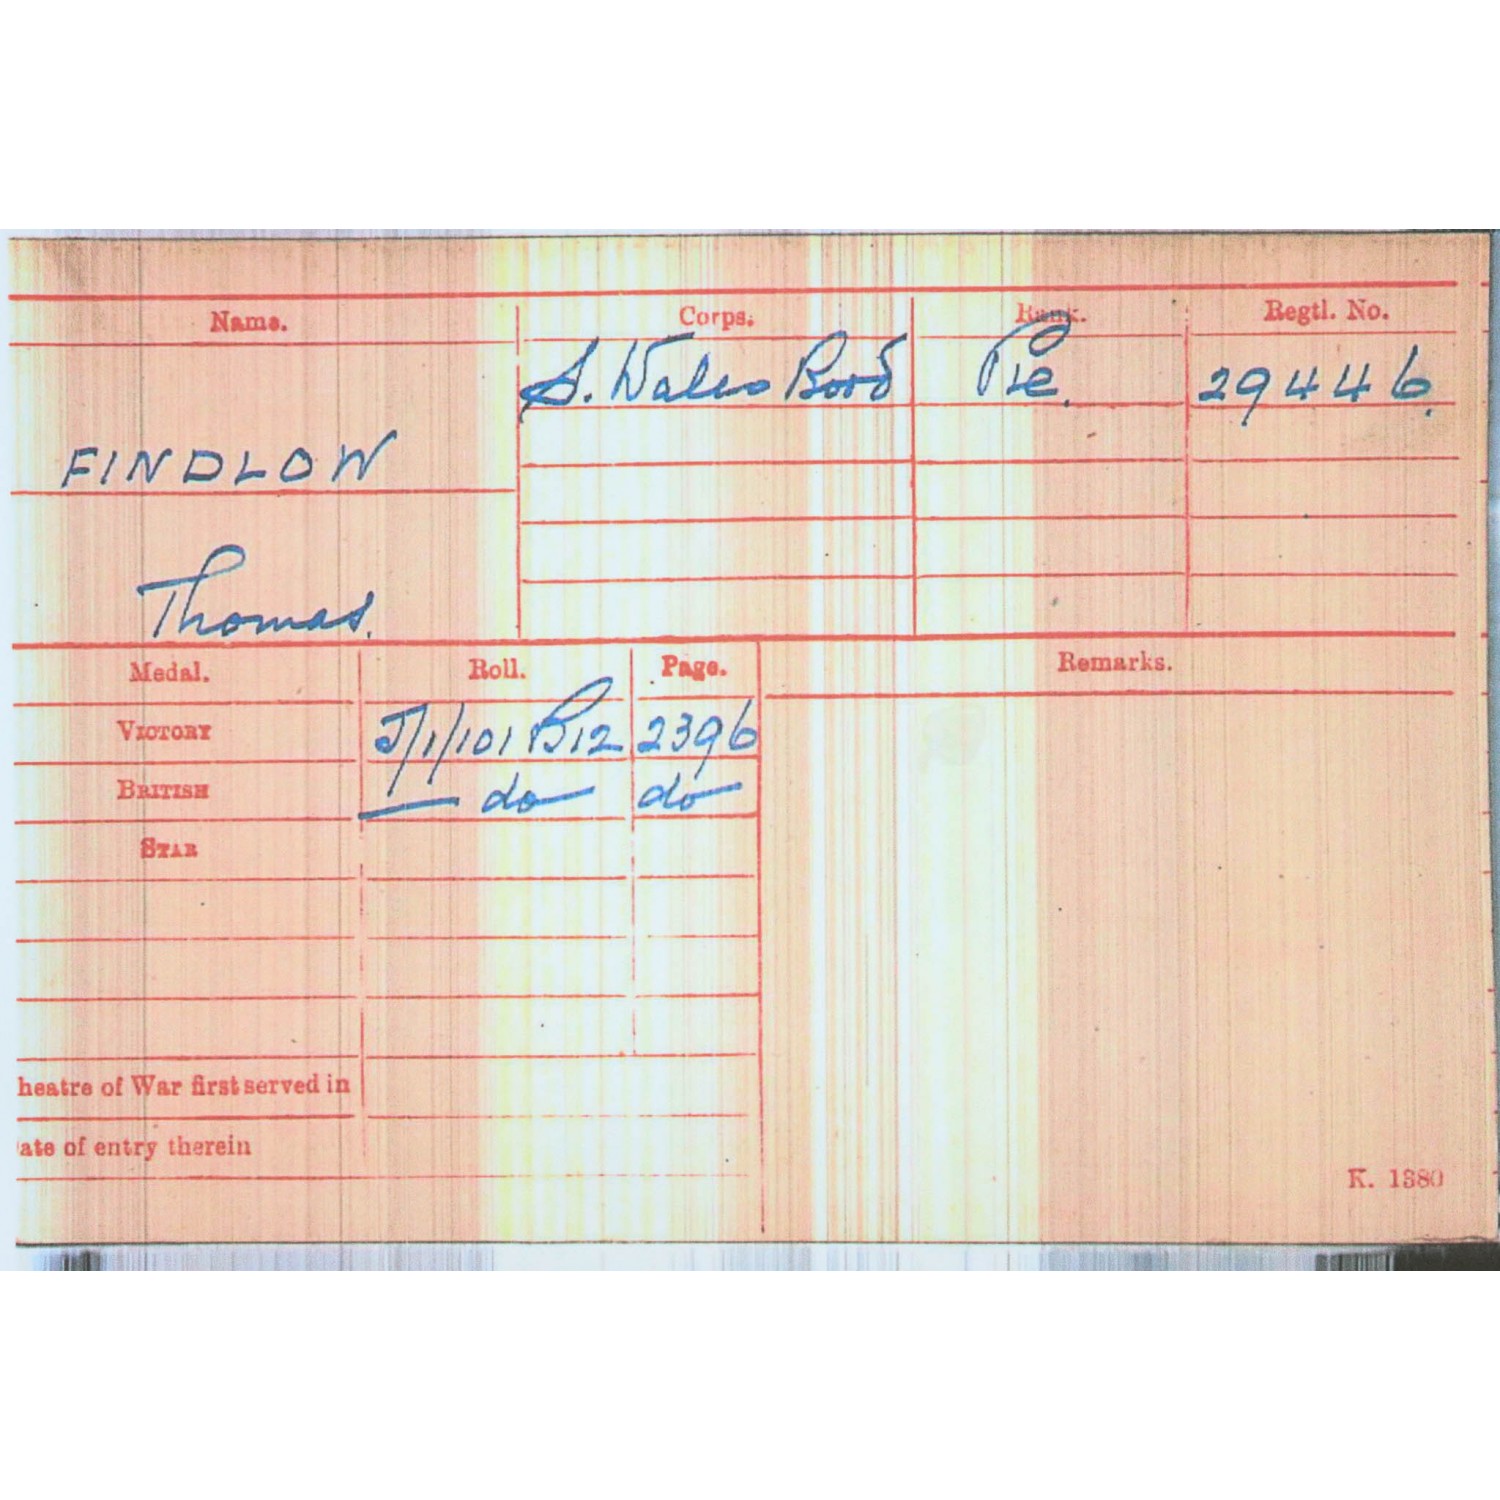 Name. Corps. Rank. Regtl. No.
S. Wales Bord Pte. 29446.
FINDLOW
Thomas.
Medal. Roll. Page. Remarks.
VICTORY J/1/101 B12 2396
BRITISH — do — do —
STAR
heatre of War first served in
ate of entry therein
K. 1380